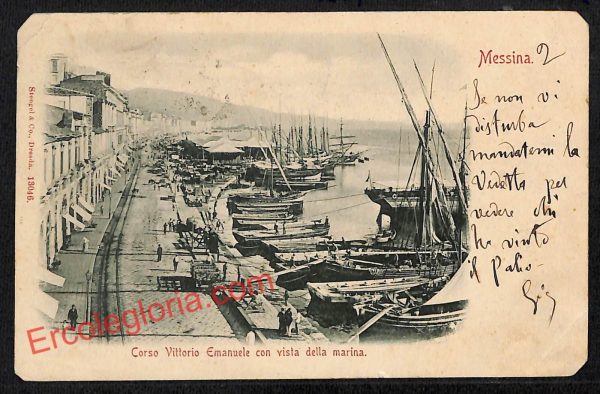 Messina. 2
Se non vi
disturba
mandatemi la
Vedetta per
vedere chi
ha vinto
il Palio-
Gigi
Stengel & Co., Dresda. 13046.
Ercolegloria.com
Corso Vittorio Emanuele con vista della marina.